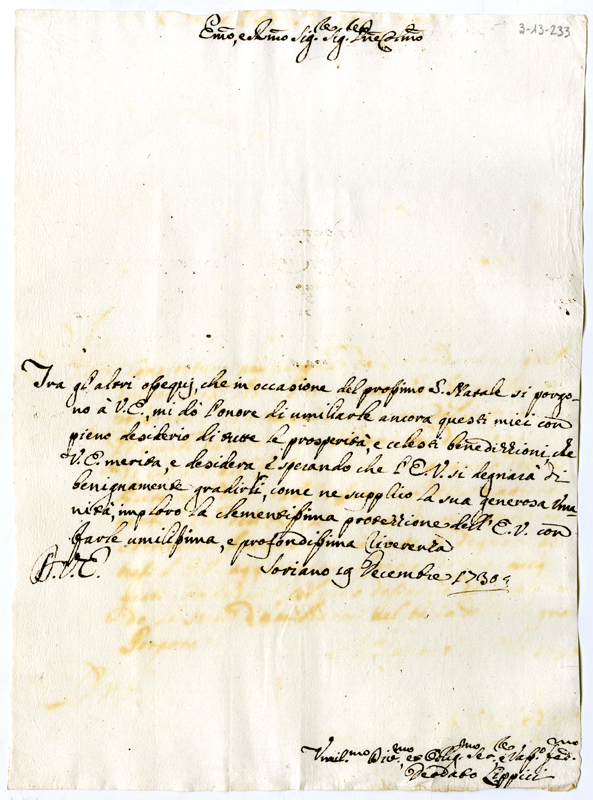 3-13-233
Emo, e Rmo Sig.re Sig.re Pne Colmo
Tra gl'altri ossequj, che in occasione del prossimo S. Natale si porgo-
no à V.E., mi dò l'onore di umiliarle ancora questi miei con
pieno desiderio di tutte le prosperità, e celesti benedizzioni, che
V.E. merita, e desidera; E sperando che l'E.V. si degnarà di
benignamente gradirli, come ne supplico la sua generosa Uma
nità, imploro la clementissima protezzione dell'E.V. con
farle umilissima, e profondissima riverenza
D.V.E. Soriano 19 Decembre 1730
Umil.mo Div.mo, et Oblig.mo Ser.re, e Vass.o fed.mo
Deodato Lippici